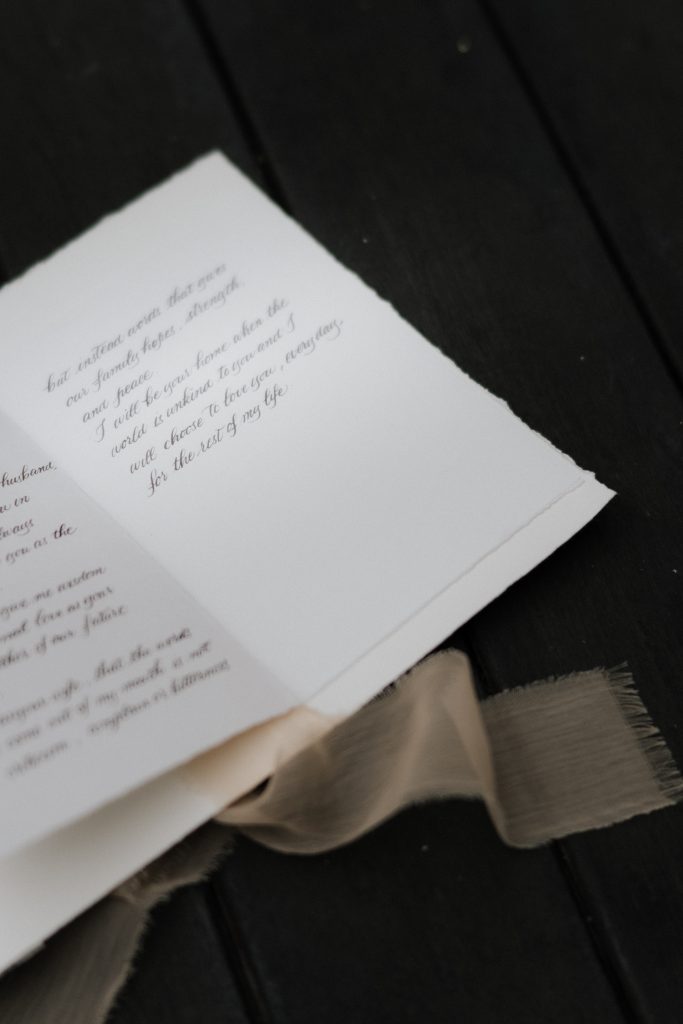 husband,
in
always
you as the
give me wisdom
love as your
of our future
wife, that the words
come out of my mouth is not
criticism, or bitterness
but instead words that gives
our family hopes, strength,
and peace
I will be your home when the
world is unkind to you and I
will choose to love you, everyday,
for the rest of my life